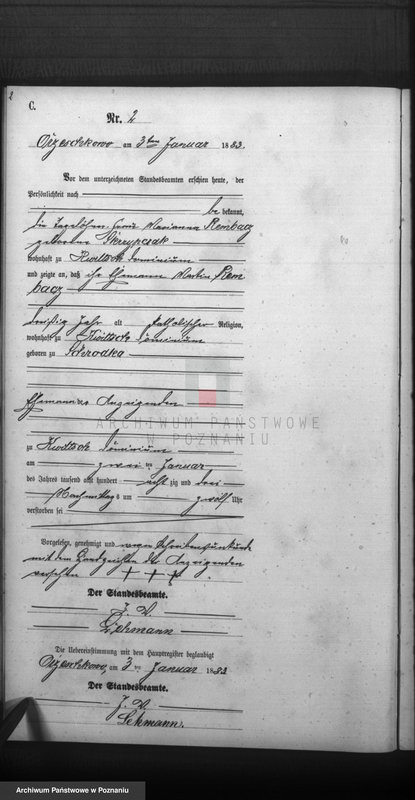 2
C.
Nr. 2
am 3ten Januar 1883.
Vor dem unterzeichneten Standesbeamten erschien heute, der
Persönlichkeit nach
be kannt,
die Tagelöhner Frau Marianna Rembacz
geborene Skrzypczak
wohnhaft zu Kwiltsch Dominium
und zeigte an, daß ihr Ehemann Martin Rem
bacz
dreißig Jahr alt katholischer Religion,
wohnhaft zu Kwiltsch Dominium
geboren zu
Ehemann der Anzeigenden
zu Kwiltsch Dominium
am zwei ten Januar
des Jahres tausend acht hundert acht zig und drei
Nachmittags um zwölf Uhr
verstorben sei
Vorgelesen, genehmigt und wegen Schreibensunkunde
mit den Handzeichen der Anzeigenden
versehen + + +
Der Standesbeamte.
J. V.
Lehmann
Die Uebereinstimmung mit dem Hauptregister beglaubigt
am 3 ten Januar 1883
Der Standesbeamte.
J. V.
Lehmann.
ARCHIWUM PAŃSTWOWE
W POZNANIU
Archiwum Państwowe w Poznaniu